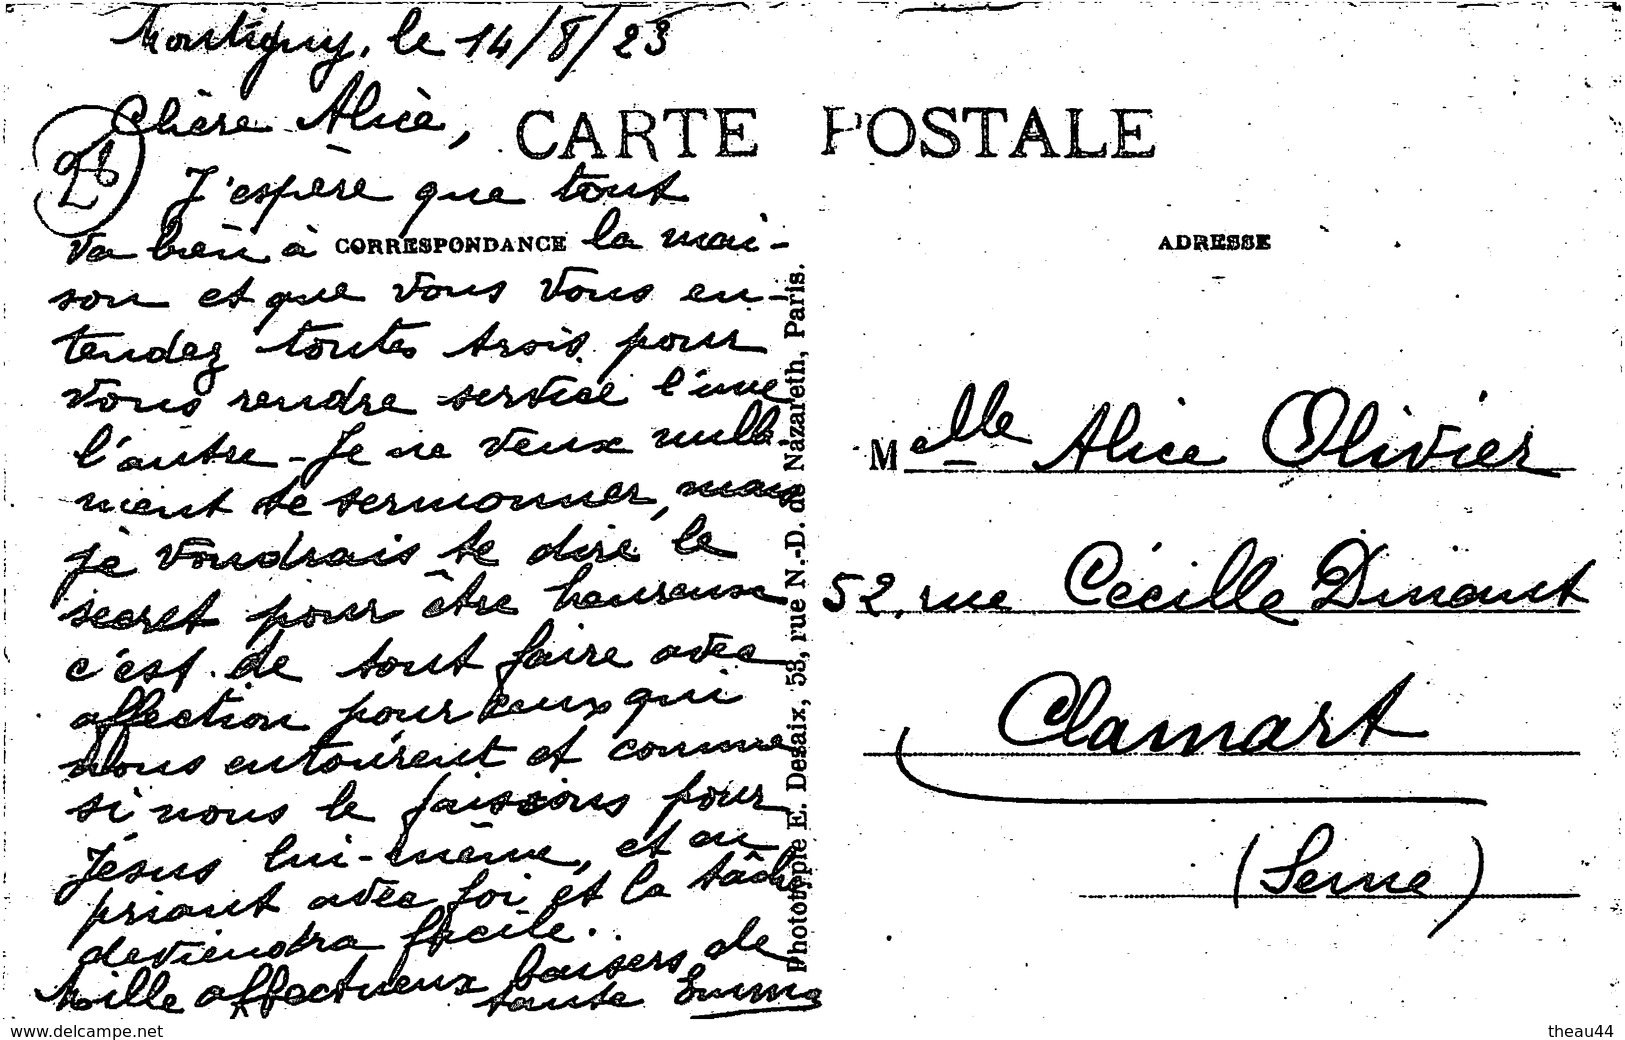 Montigny, le 14/8/23
Chère Alice,
CARTE POSTALE
J'espère que tout
va bien à la mai-
CORRESPONDANCE
son et que vous vous en-
tendez toutes trois pour
vous rendre service l'une
l'autre - Je ne veux nulle-
ment te sermonner, mais
je voudrais te dire le
secret pour être heureuse
c'est de tout faire avec
affection pour ceux qui
nous entourent et comme
si nous le faisions pour
Jésus lui-même, et en
priant avec foi et la tâche
deviendra facile.
Mille affectueux baisers de
tante Emma
Phototypie E. Desaix, 53, rue N.-D. de Nazareth, Paris.
ADRESSE
Melle Alice Olivier
52, rue Cécille Dinant
Clamart
(Seine)
www.delcampe.net
theau44